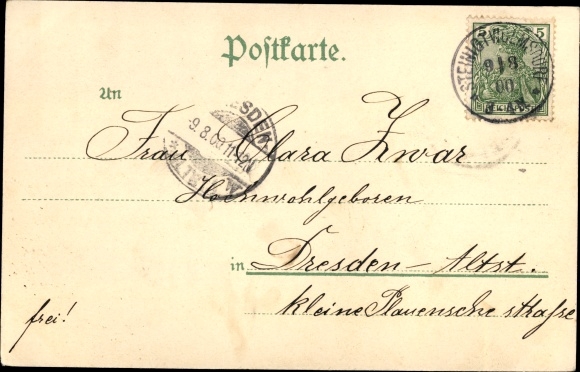 Postkarte.
5
STEINIGTWOLMSDORF
9 8
00
An
DRESDEN
9.8.00.11-12V
ALTST.
Frau Clara Zwar
Hochwohlgeboren
in Dresden-Altst.
kleine Plauensche straße
frei!